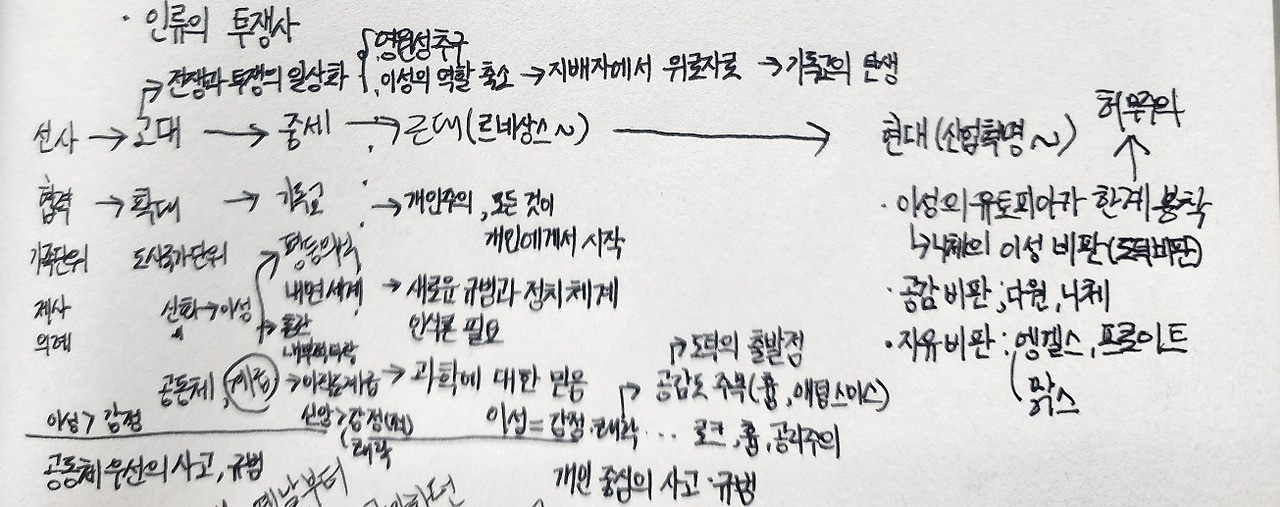 · 인류의 투쟁사
영원성추구
→ 전쟁과 투쟁의 일상화 · 이성의 역할 축소 → 지배자에서 위로자로 → 기독교의 탄생
선사 → 고대 → 중세 → 근대(르네상스~) → 현대(산업혁명~) 허무주의
협력 → 확대 → 기독교 → 개인주의, 모든 것이
개인에게서 시작
가족단위 도시국가단위 → 평등의식
내면세계 → 새로운 규범과 정치체계
인식론 필요
제사 신화→이성
의례
공동체, 계급 → 과학에 대한 믿음
이성 > 감정 신앙 > 감정(성)
쾌락
이성 = 감정·쾌락 ... 로크, 흄, 공리주의
→ 도덕의 출발점
공감도 주목(흄, 애덤스미스)
공동체 우선의 사고, 규범
개인 중심의 사고·규범
· 이성의 유토피아가 한계 봉착
↳ 니체의 이성 비판(도덕비판)
· 공감 비판 ; 다윈, 니체
· 자유비판 : 엥겔스, 프로이트
맑스
옛날부터